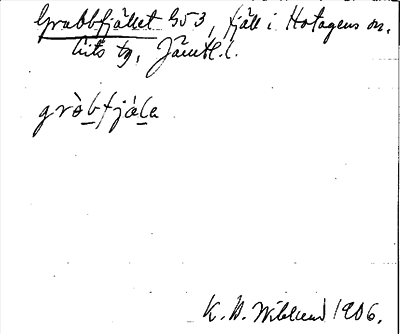 Grubbfjället 953, fjäll i Hotagens
tg, Jämtl. l.
gròbfjàla
K. B. Wiklund 1906.